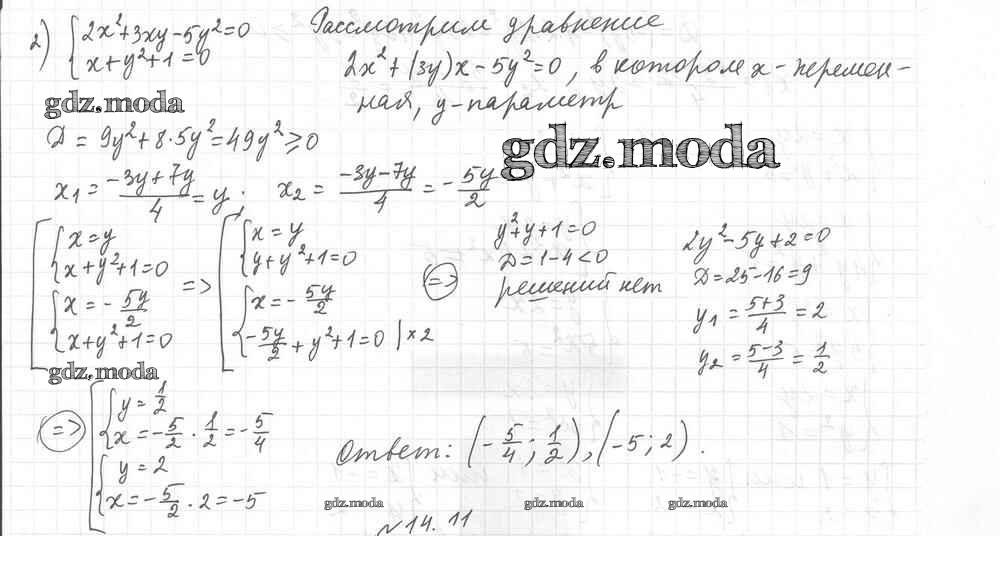 2) { 2x²+3xy-5y²=0
x+y²+1=0
Рассмотрим уравнение
2x²+(3y)x-5y²=0, в котором x-перемен-
ная, y-параметр
gdz.moda
gdz.moda
Д = 9y²+8·5y²=49y²≥0
x₁ = (-3y+7y)/4 = y; x₂ = (-3y-7y)/4 = -5y/2
[ { x=y
x+y²+1=0
{ x = -5y/2
x+y²+1=0
=> [ { x=y
y+y²+1=0
{ x=-5y/2
-5y/2+y²+1=0 |×2
=>
y²+y+1=0
Д=1-4<0
решений нет
2y²-5y+2=0
Д=25-16=9
y₁ = (5+3)/4 = 2
y₂ = (5-3)/4 = 1/2
gdz.moda
=> [ { y=1/2
x=-5/2·1/2=-5/4
{ y=2
x=-5/2·2=-5
Ответ: (-5/4; 1/2), (-5; 2).
gdz.moda
gdz.moda
gdz.moda
№14.11